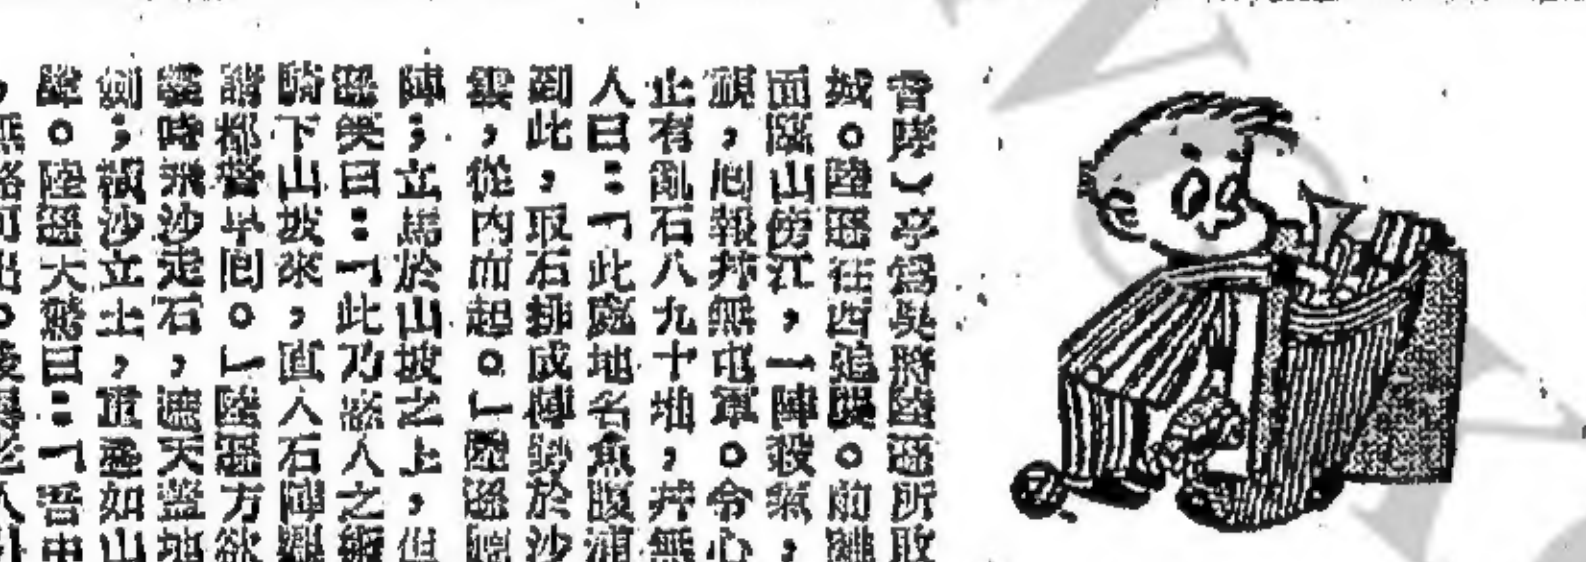 書隊)亭爲吳將陸遜所敗
城。陸遜往西追襲。前離
面臨山傍江,一陣殺氣,
視,回報幷無屯軍。令心
止有亂石八九十堆,幷無
人曰:「此處地名魚腹浦
到此,取石排成陣勢於沙
雲,從內而起。」陸遜聽
陣;立馬於山坡之上,但
遜笑曰:「此乃惑人之術
騎下山坡來,直入石陣觀
謝都督早回。」陸遜方欲
霎時飛沙走石,遮天蓋地
劍;橫沙立土,重疊如山
聲。陸遜大驚曰:「吾中
,無路可出。